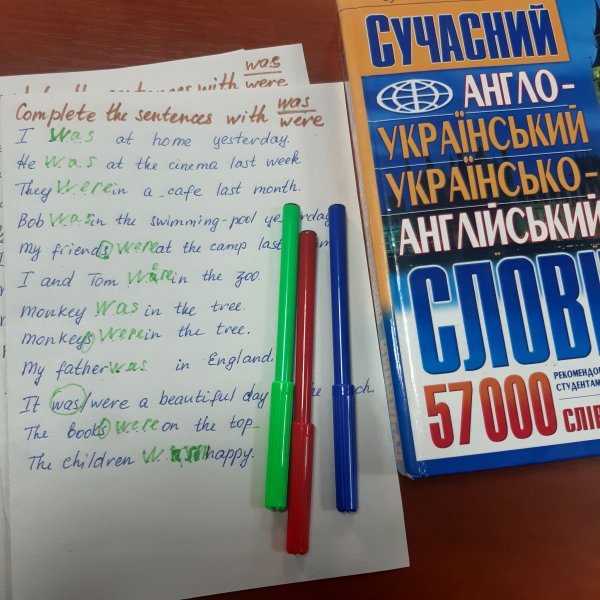 was
sentences with were
Complete the sentences with was
were
I was at home yesterday.
He was at the cinema last week
They were in a cafe last month.
Bob was in the swimming-pool yesterday
My friends were at the camp last
I and Tom were in the zoo.
monkey was in the tree.
monkeys were in the tree.
My father was in England.
It was/were a beautiful day
The books were on the top
The children happy.
СУЧАСНИЙ
АНГЛО-
УКРАЇНСЬКИЙ
УКРАЇНСЬКО-
АНГЛІЙСЬКИЙ
СЛОВ
РЕКОМЕНДОВ
СТУДЕНТАМ
57000 СЛІВ